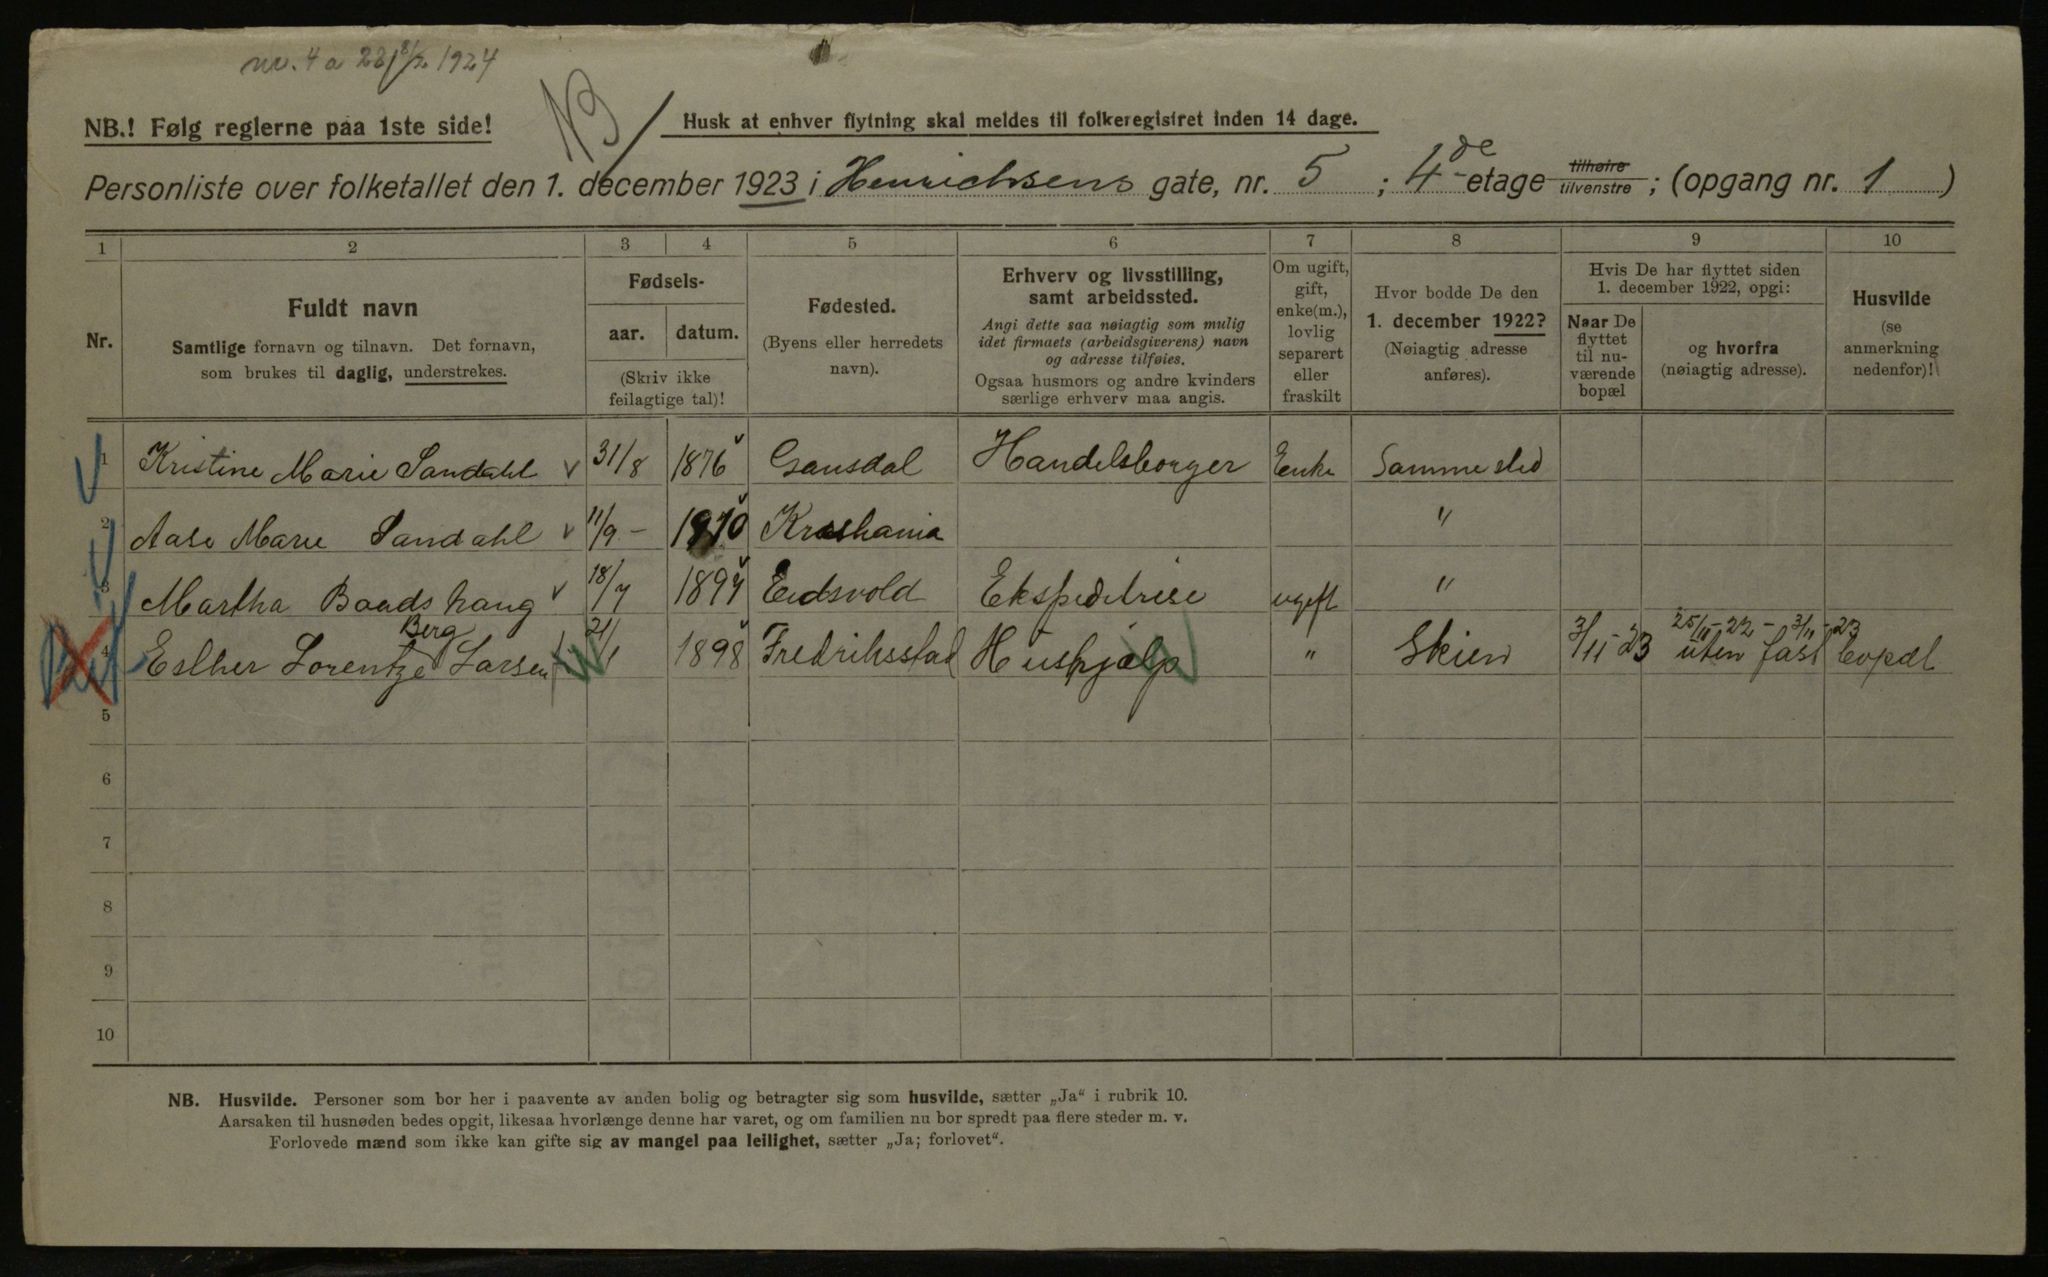 nv. 4 a 28/2 1924
NB
NB.! Følg reglerne paa 1ste side!
Husk at enhver flytning skal meldes til folkeregistret inden 14 dage.
Personliste over folketallet den 1. december 1923 i Henrichsens gate, nr. 5 ; 4de etage tilhøire tilvenstre ; (opgang nr. 1 )
1 2 3 4 5 6 7 8 9 10
Nr.
Fuldt navn
Samtlige fornavn og tilnavn. Det fornavn,
som brukes til daglig, understrekes.
Fødsels-
aar. datum.
(Skriv ikke
feilagtige tal)!
Fødested.
(Byens eller herredets
navn).
Erhverv og livsstilling,
samt arbeidssted.
Angi dette saa nøiagtig som mulig
idet firmaets (arbeidsgiverens) navn
og adresse tilføies.
Ogsaa husmors og andre kvinders
særlige erhverv maa angis.
Om ugift,
gift,
enke(m.),
lovlig
separert
eller
fraskilt
Hvor bodde De den
1. december 1922?
(Nøiagtig adresse
anføres).
Hvis De har flyttet siden
1. december 1922, opgi:
Naar De
flyttet
til nu-
værende
bopæl
og hvorfra
(nøiagtig adresse).
Husvilde
(se
anmerkning
nedenfor)!
1 Kristine Marie Sandahl 31/8 1876 Gausdal Handelsborger Enke Samme sted
2 Aase Marie Sandahl 11/9 - 1910 Kristiania "
3 Martha Baadshaug 18/7 1897 Eidsvold Ekspeditrise ugift "
4 Esther Lorentze Berg Larsen 21/1 1898 Fredriksstad Hushjælp " Skien 3/11-23 25/11-22 - 3/11-23 uten fast bopæl
5
6
7
8
9
10
NB. Husvilde. Personer som bor her i paavente av anden bolig og betragter sig som husvilde, sætter „Ja“ i rubrik 10.
Aarsaken til husnøden bedes opgit, likesaa hvorlænge denne har varet, og om familien nu bor spredt paa flere steder m. v.
Forlovede mænd som ikke kan gifte sig av mangel paa leilighet, sætter „Ja; forlovet“.